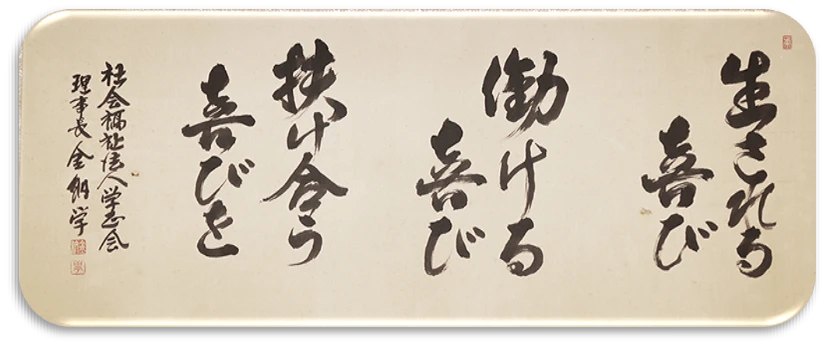 生される
喜び
働ける
喜び
扶け合う
喜びを
社会福祉法人学志会
理事長金谷学